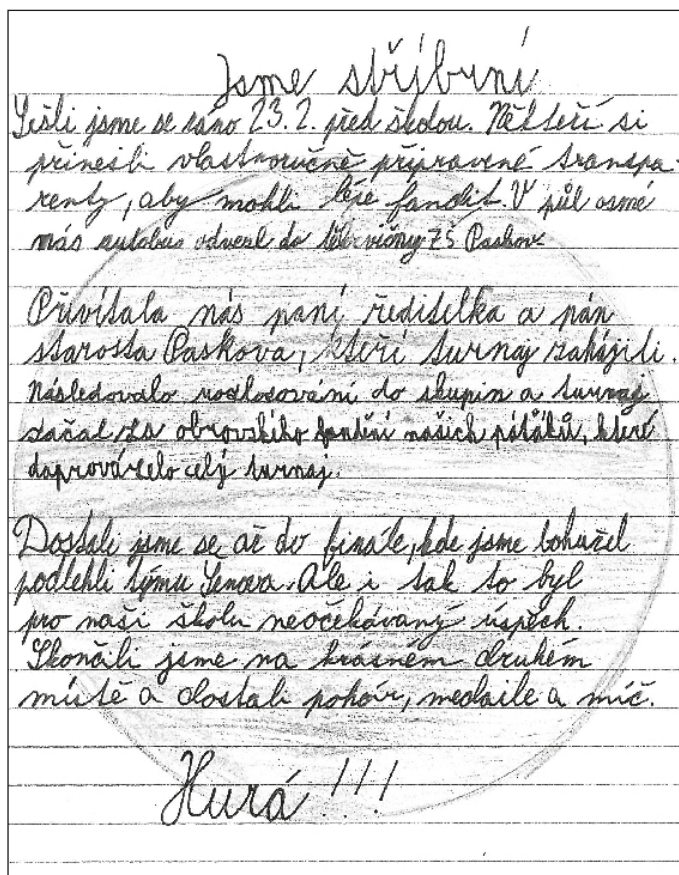 Jsme stříbrní
Sešli jsme se ráno 23.2. před školou. Někteří si
přinesli vlastnoručně připravené transpa-
renty, aby mohli lépe fandit. V půl osmé
nás autobus odvezl do tělocvičny ZŠ Paskov.
Přivítala nás paní ředitelka a pán
starosta Paskova, kteří turnaj zahájili.
Následovalo rozlosování do skupin a turnaj
začal za obrovského fandění našich páťáků, které
doprovázelo celý turnaj.
Dostali jsme se až do finále, kde jsme bohužel
podlehli týmu Šenova. Ale i tak to byl
pro naši školu neočekávaný úspěch.
Skončili jsme na krásném druhém
místě a dostali pohár, medaile a míč.
Hurá !!!